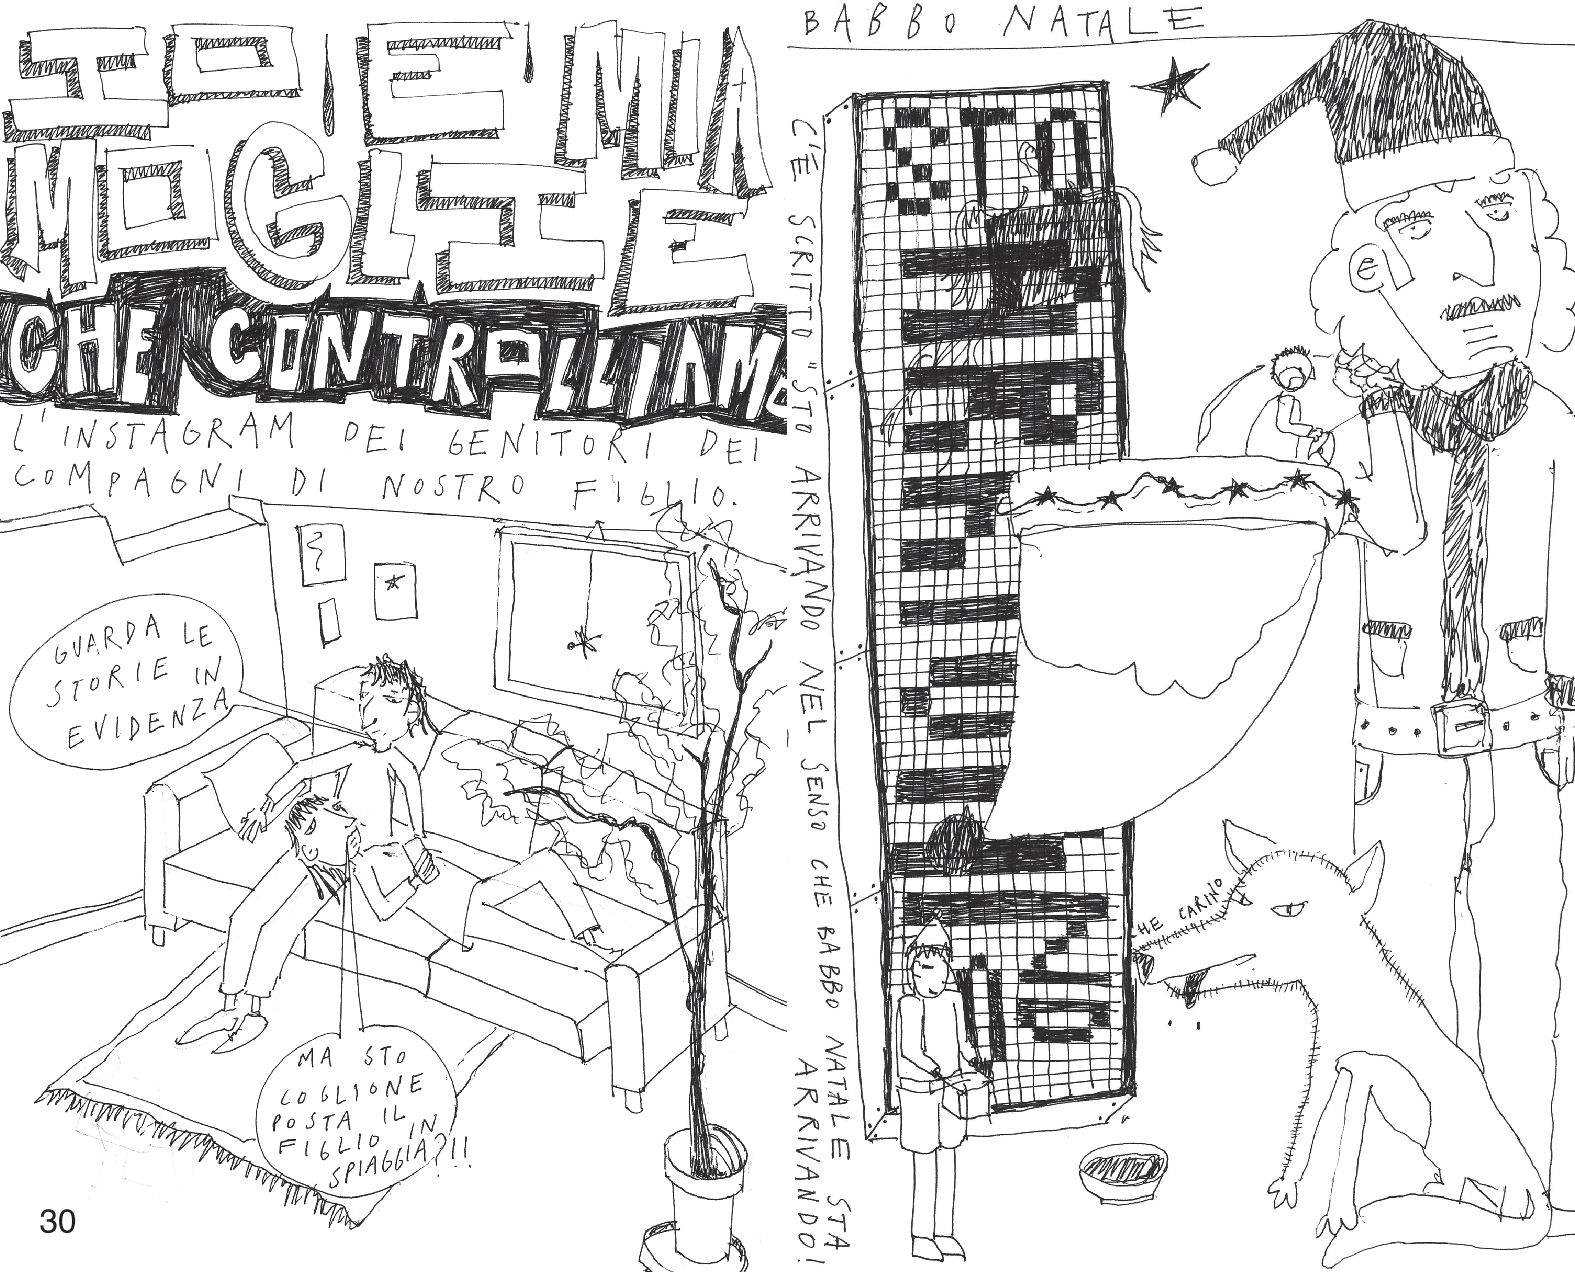 IO E MIA
MOGLIE
CHE CONTROLLIAMO
L'INSTAGRAM DEI GENITORI DEI
COMPAGNI DI NOSTRO FIGLIO.
GUARDA LE
STORIE IN
EVIDENZA
MA STO
COGLIONE
POSTA IL
FIGLIO IN
SPIAGGIA?!!
30
BABBO NATALE
C'È SCRITTO "STO ARRIVANDO NEL SENSO CHE BABBO NATALE STA
ARRIVANDO!
STO
CHE CARINO